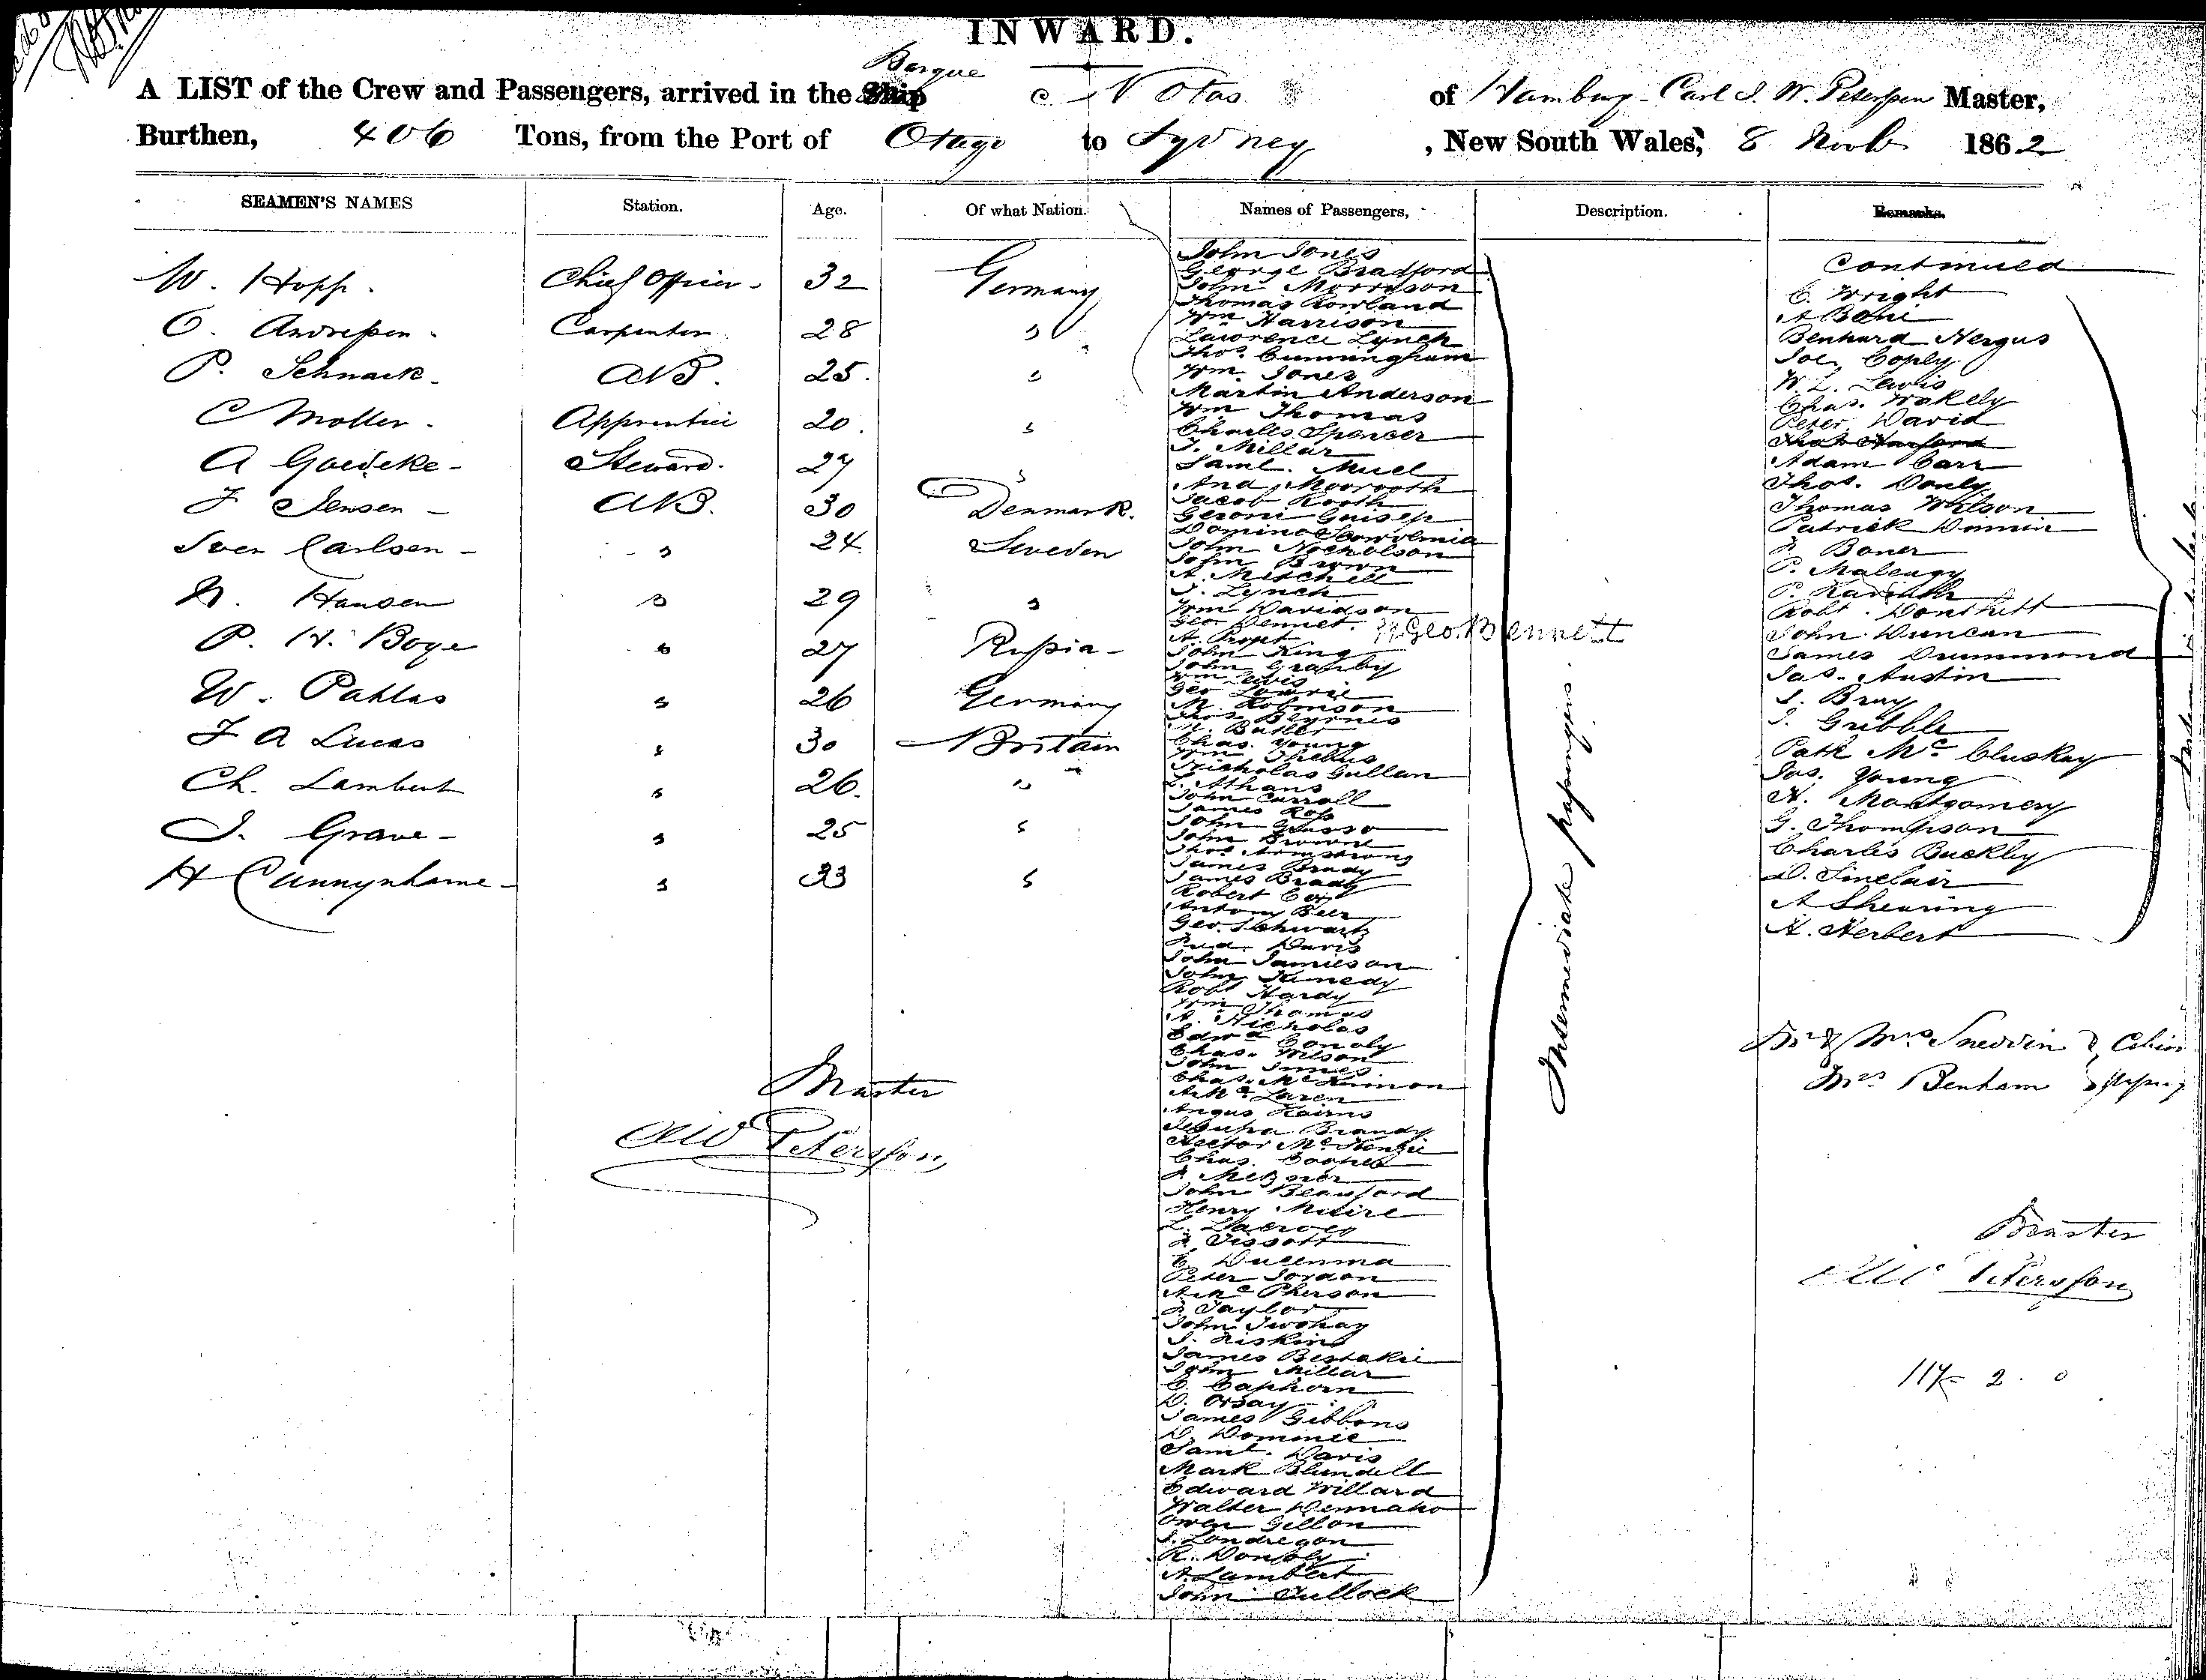 INWARD.
Barque
A LIST of the Crew and Passengers, arrived in the Ship Notos of Hamburg Carl J. W. Peterssen Master,
Burthen, 406 Tons, from the Port of Otago to Sydney, New South Wales, 8 Novb 1862
SEAMEN'S NAMES Station. Age. Of what Nation. Names of Passengers, Description. Remarks.
W. Hopp. Chief Officer 32 Germany
O. Andressen. Carpenter 28 "
P. Schnack. AB. 25. "
C Moller. Apprentice 20. "
A Goedeke Steward. 27 "
J Jensen AB. 30 Denmark.
Sven Carlsen " 24 Sweden
N. Hansen " 29 "
P. H. Boye " 27 Russia
W. Pahlas " 26 Germany
J A Lucas " 30 Britain
Ch. Lambert " 26. "
J. Grave " 25 "
H Cunnynhame " 33 "
Master
CIW Peterssen
John Jones
George Bradford
John Morrison
Thomas Rowland
Wm Harrison
Lawrence Lynch
Thos. Cunningham
Wm. Jones
Martin Anderson
Wm Thomas
Charles Spencer
J. Millar
Saml. Muel
And. Moorooth
Jacob Rooth
Geroni Guisep
John Nicholson
John Brown
A. Mitchell
J. Lynch
Wm Davidson
Geo Bennet. Geo. Bennett
A. Propt
John King
John Granby
Wm Lewis
Geo Lowrie
M. Robinson
Thos. Beyrnes
M. Butler
Chas. Young
Wm Thebus
Nicholas Gullan
L. Athans
John Carroll
James Ross
John Grasso
John Browne
Thos. Armstrong
James Brady
James Brady
Robert Cox
Antony Beer
Geo. Schwartz
Davis
John Jamieson
John Kennedy
Robt Hardy
Wm Thomas
A. Nicholas
Edwd Conoly
Chas. Wilson
John Innes
Chas. McKinnon
A McLaren
Angus Kairns
Brandy
Hector McKenzie
Chas. Cooper
John Beauford
Henry Muire
L. Lacroey
J. Tissott
E. Ducenma
Peter Jordan
A McPherson
J. Taylor
John Twohay
J. Hiskins
James Bestakie
John Millar
C. Caphorn
D. Orsay
James Gibbons
D. Dominie
Saml. Davis
Mark Blundell
Edward Willard
Walter Dennaho
Owen Gillon
J. Londregon
R. Donoly
A. Lambert
John Cullock
Intermediate passengers.
Continued
C. Wright
A Boni
Benhard Nergus
Joe. Copley
W. L. Lewis
Chas. Wakely
Peter David
Adam Carr
Thos. Donly
Thomas Wilson
Patrick Dannin
J. Boner
P. Maleagy
Robt. Douthitt
John Duncan
James Drummond
Jas. Austin
J. Bray
J. Gribble
Patk McCluskay
Jas. Young
A. Montgomery
G. Thompson
Charles Buckley
D. Sinclair
A Shearing
A. Herbert
Mr & Mrs Sneddin & Cabin
Mrs Benham
Master
CIW Peterssen
117 - 2. 0